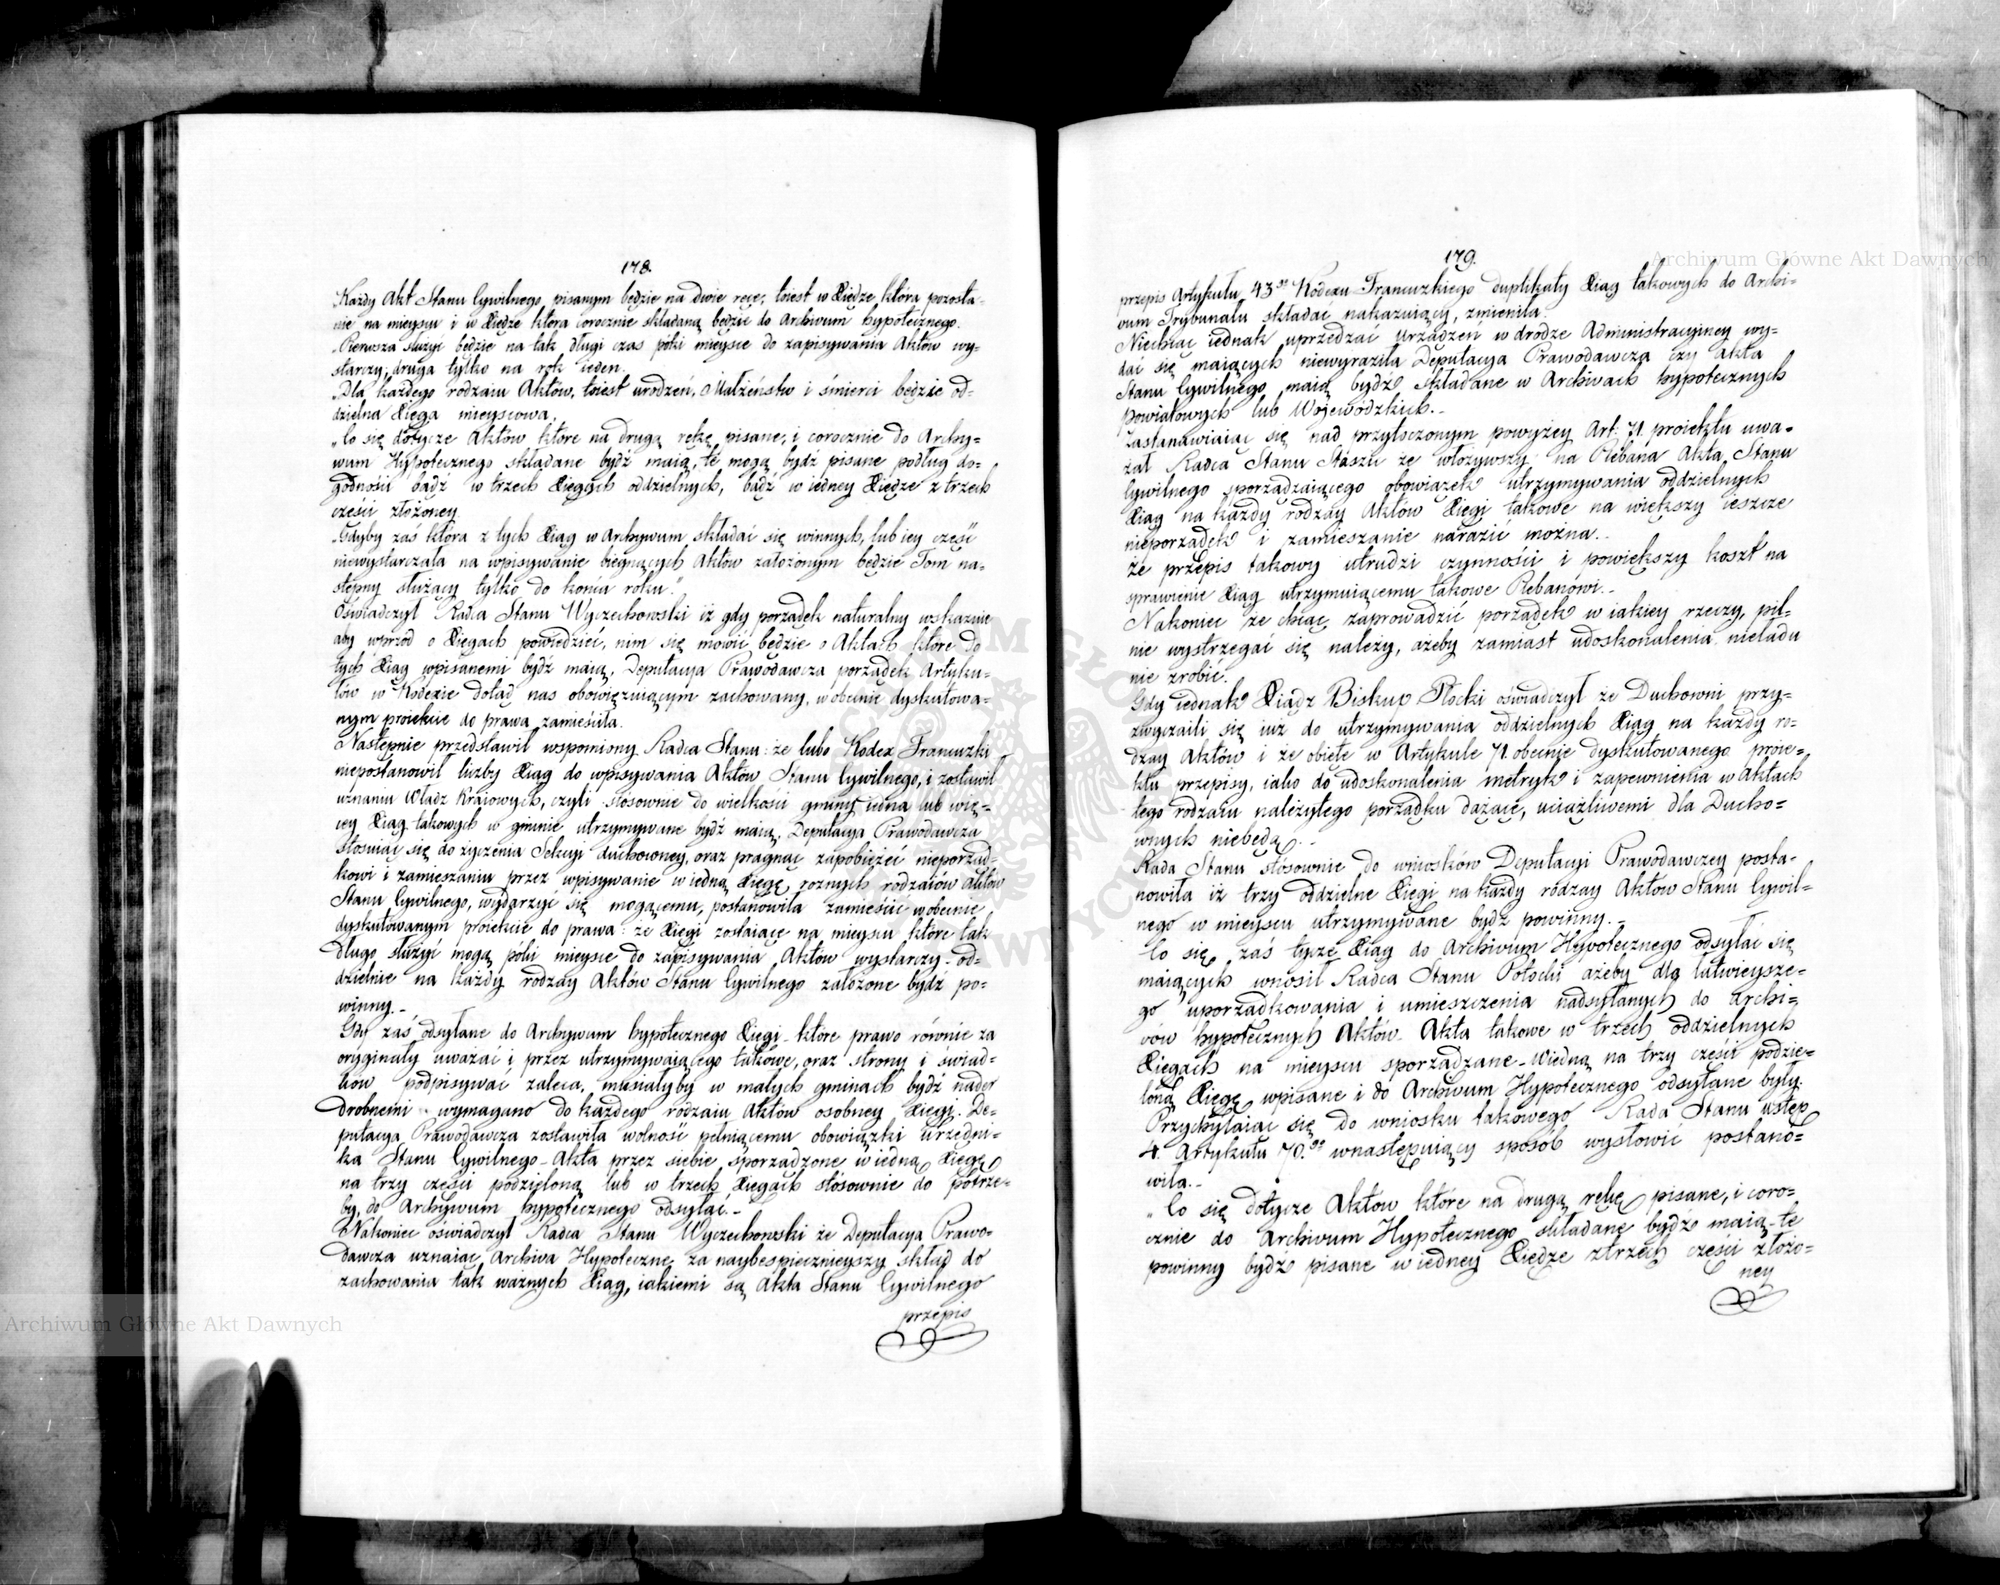 178.
Każdy Akt Stanu Cywilnego, pisanym będzie na dwie ręce, toiest w Xiędze, która pozosta-
nie na mieyscu i w Xiędze która corocznie składaną będzie do Archivum hypotecznego.
„Pierwsza służyć będzie na tak długi czas póki mieysce do zapisywania Aktów wy-
starczy, druga tylko na rok ieden.
„Dla każdego rodzaiu Aktów, toiest urodzeń, Małżeństw i śmierci będzie od-
dzielna Xięga mieyscowa.
„Co się dotycze Aktów które na drugą rękę pisane, i corocznie do Archy-
wum Hypotecznego składane bydź maią, te mogą bydź pisane podług do-
godności bądź w trzech Xięgach oddzielnych, bądź w iedney Xiędze z trzech
części złożoney.
„Gdyby zaś która z tych Xiąg w Archywum składać się winnych, lub iey część
niewystarczała na wpisywanie biegnących Aktów założonym będzie Tom na-
stępny służący tylko do końca roku."
Oświadczył Radca Stanu Wyczechowski iż gdy porządek naturalny wskazuie
aby wprzód o Xięgach powiedzieć, nim się mówić będzie o Aktach które do
tych Xiąg wpisanemi bydź maią, Deputacya Prawodawcza porządek Artyku-
łów w Kodexie dotąd nas obowięzuiącym zachowany, w obecnie dyskutowa-
nym proiekcie do prawa zamieściła.
Następnie przedstawił wspomniony Radca Stanu: że lubo Kodex Francuzki
niepostanowił liczby Xiąg do wpisywania Aktów Stanu Cywilnego, i zostawił
uznaniu Władz Kraiowych, czyli stósownie do wielkości gminy iedna lub wię-
cey Xiąg takowych w gminie utrzymywane bydź maią, Deputacya Prawodawcza
stósuiąc się do życzenia Sekcyi duchowney, oraz pragnąc zapobieżeć nieporząd-
kowi i zamieszaniu przez wpisywanie w iedną Xięgę różnych rodzaiów aktów
Stanu Cywilnego, wydarzyć się mogącemu, postanowiła zamieścić w obecnie
dyskutowanym proiekcie do prawa: że Xięgi zostaiące na mieyscu które tak
długo służyć mogą póki mieysce do zapisywania Aktów wystarczy. od-
dzielnie na każdy rodzay Aktów Stanu Cywilnego założone bydź po-
winny._
Gdy zaś odsyłane do Archywum hypotecznego Xięgi_ które prawo równie za
oryginały uważać i przez utrzymywaiącego takowe, oraz strony i świad-
ków podpisywać zaleca, musiałyby w małych gminach bydź nader
drobnemi wymagano do każdego rodzaiu Aktów osobney Xięgi. De-
putacya Prawodawcza zostawiła wolność pełniącemu obowiązki Urzędni-
ka Stanu Cywilnego_ Akta przez siebie sporządzone w iedną Xięgę
na trzy części podzieloną lub w trzech Xięgach stósownie do potrze-
by, do Archywum hypotecznego odsyłać._
Nakoniec oświadczył Radca Stanu Wyczechowski że Deputacya Prawo-
dawcza uznaiąc Archiva Hypoteczne za naybespiecznieyszy skład do
zachowania tak ważnych Xiąg, iakiemi są Akta Stanu Cywilnego
przepis
179.
przepis Artykułu 43go Kodexu Francuzkiego duplikaty Xiąg takowych do Archi-
wum Trybunału składać nakazuiący, zmieniła.
Niechcąc iednak uprzedzać urządzeń w drodze Administracyiney wy-
dać się maiących niewyraziła Deputacya Prawodawcza czy Akta
Stanu Cywilnego maią bydź składane w Archivach hypotecznych
Powiatowych lub Wojewódzkich._
Zastanawiaiąc się nad przytoczonym powyżey Art: 71 proiektu uwa-
żał Radca Stanu Staszic że włożywszy na Plebana Akta Stanu
Cywilnego sporządzaiącego obowiązek utrzymywania oddzielnych
Xiąg na każdy rodzay Aktów Xięgi takowe na większy ieszcze
nieporządek i zamieszanie narazić można._
Że przepis takowy utrudzi czynności i powiększy koszt na
sprawienie Xiąg utrzymuiącemu takowe Plebanowi._
Nakoniec że chcąc zaprowadzić porządek w iakiey rzeczy, pil-
nie wystrzegać się należy, ażeby zamiast udoskonalenia nieładu
nie zrobić.
Gdy iednak Xiądz Biskup Płocki oświadczył że Duchowni przy-
zwyczaili się iuż do utrzymywania oddzielnych Xiąg na każdy ro-
dzay Aktów i że obięte w Artykule 71. obecnie dyskutowanego proie-
ktu przepisy, iako do udoskonalenia metryk i zapewnienia w Aktach
tego rodzaiu należytego porządku dążące, uciążliwemi dla Ducho-
wnych niebędą._
Rada Stanu stósownie do wniosków Deputacyi Prawodawczey posta-
nowiła iż trzy oddzielne Xięgi na każdy rodzay Aktów Stanu Cywil-
nego w mieyscu utrzymywane bydź powinny._
Co się zaś tycze Xiąg do Archivum Hypotecznego odsyłać się
maiących wnosił Radca Stanu Potocki ażeby dla łatwieysze-
go uporządkowania i umieszczenia nadsyłanych do Archi-
vów hypotecznych Aktów_ Akta takowe w trzech oddzielnych
Xięgach na mieyscu sporządzane_ w iedną na trzy części podzie-
loną Xięgę wpisane i do Archivum Hypotecznego odsyłane były.
Przychylaiąc się do wniosku takowego Rada Stanu ustęp
4. Artykułu 70.go w następuiący sposób wysłowić postano-
wiła._
„Co się dotycze Aktów które na drugą rękę pisane, i coro-
cznie do Archivum Hypotecznego składane bydź maią_ te
powinny bydź pisane w iedney Xiędze z trzech części złożo-
ney
Archiwum Główne Akt Dawnych
Archiwum Główne Akt Dawnych